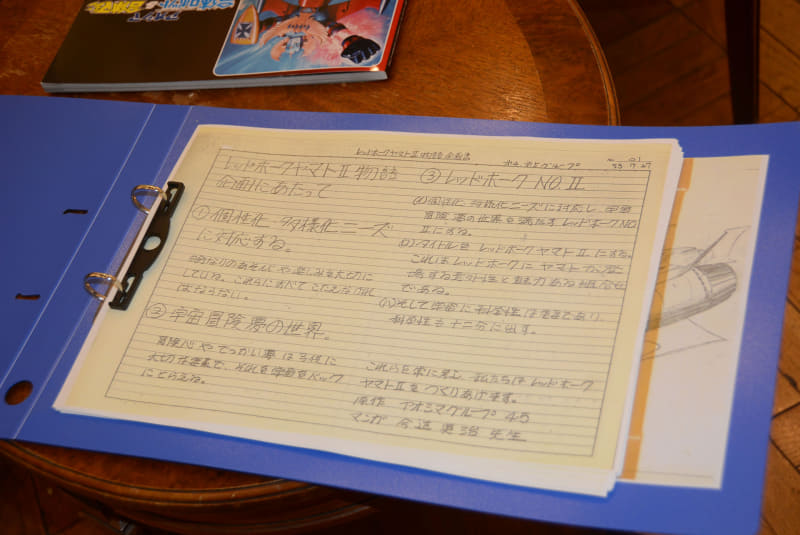 レッドホークヤマトⅡ物語 企画書
No. 01
レッドホークヤマトⅡ物語
企画にあたって
①個性化 多様化ニーズ
に対応する。
自分なりのあそびや楽しみを大切に
している。これらにすべてこたえなければ
ばならない。
②宇宙冒険夢の世界。
冒険心やでっかい夢は子供に
大切な要素で、それを宇宙をバックに
にとらえる。
③レッドホーク NO.Ⅱ
(イ)個性化 多様化ニーズに対応し 宇宙
冒険 夢の世界を満たす レッドホークNO.
Ⅱにする。
(ロ)タイトルを レッドホークヤマトⅡ にする。
これはレッドホークに ヤマトが
する意外性と魅力ある組合せ
である。
(ハ)そして宇宙に 科学性は
科学性も十二分に出す。
これらを常に考え、私たちは レッドホーク
ヤマトⅡ をつくりあげます。
原作 アオシマグループ 45
マンガ 今道 英治 先生